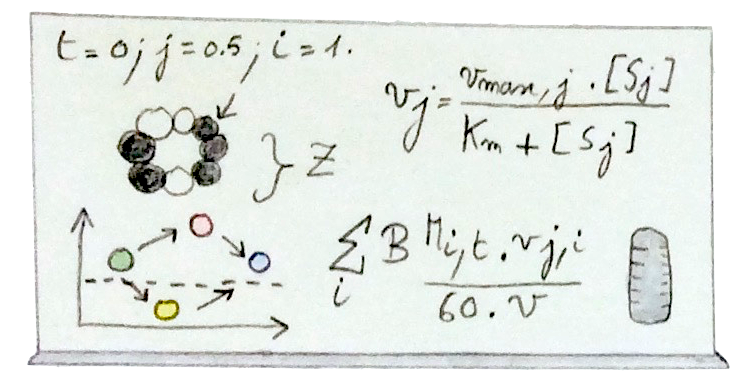 t=0; j=0.5; i=1.
vj = vmax, j . [Sj] / Km + [Sj]
} Z
∑i B Mi,t . vj,i / 60 . v